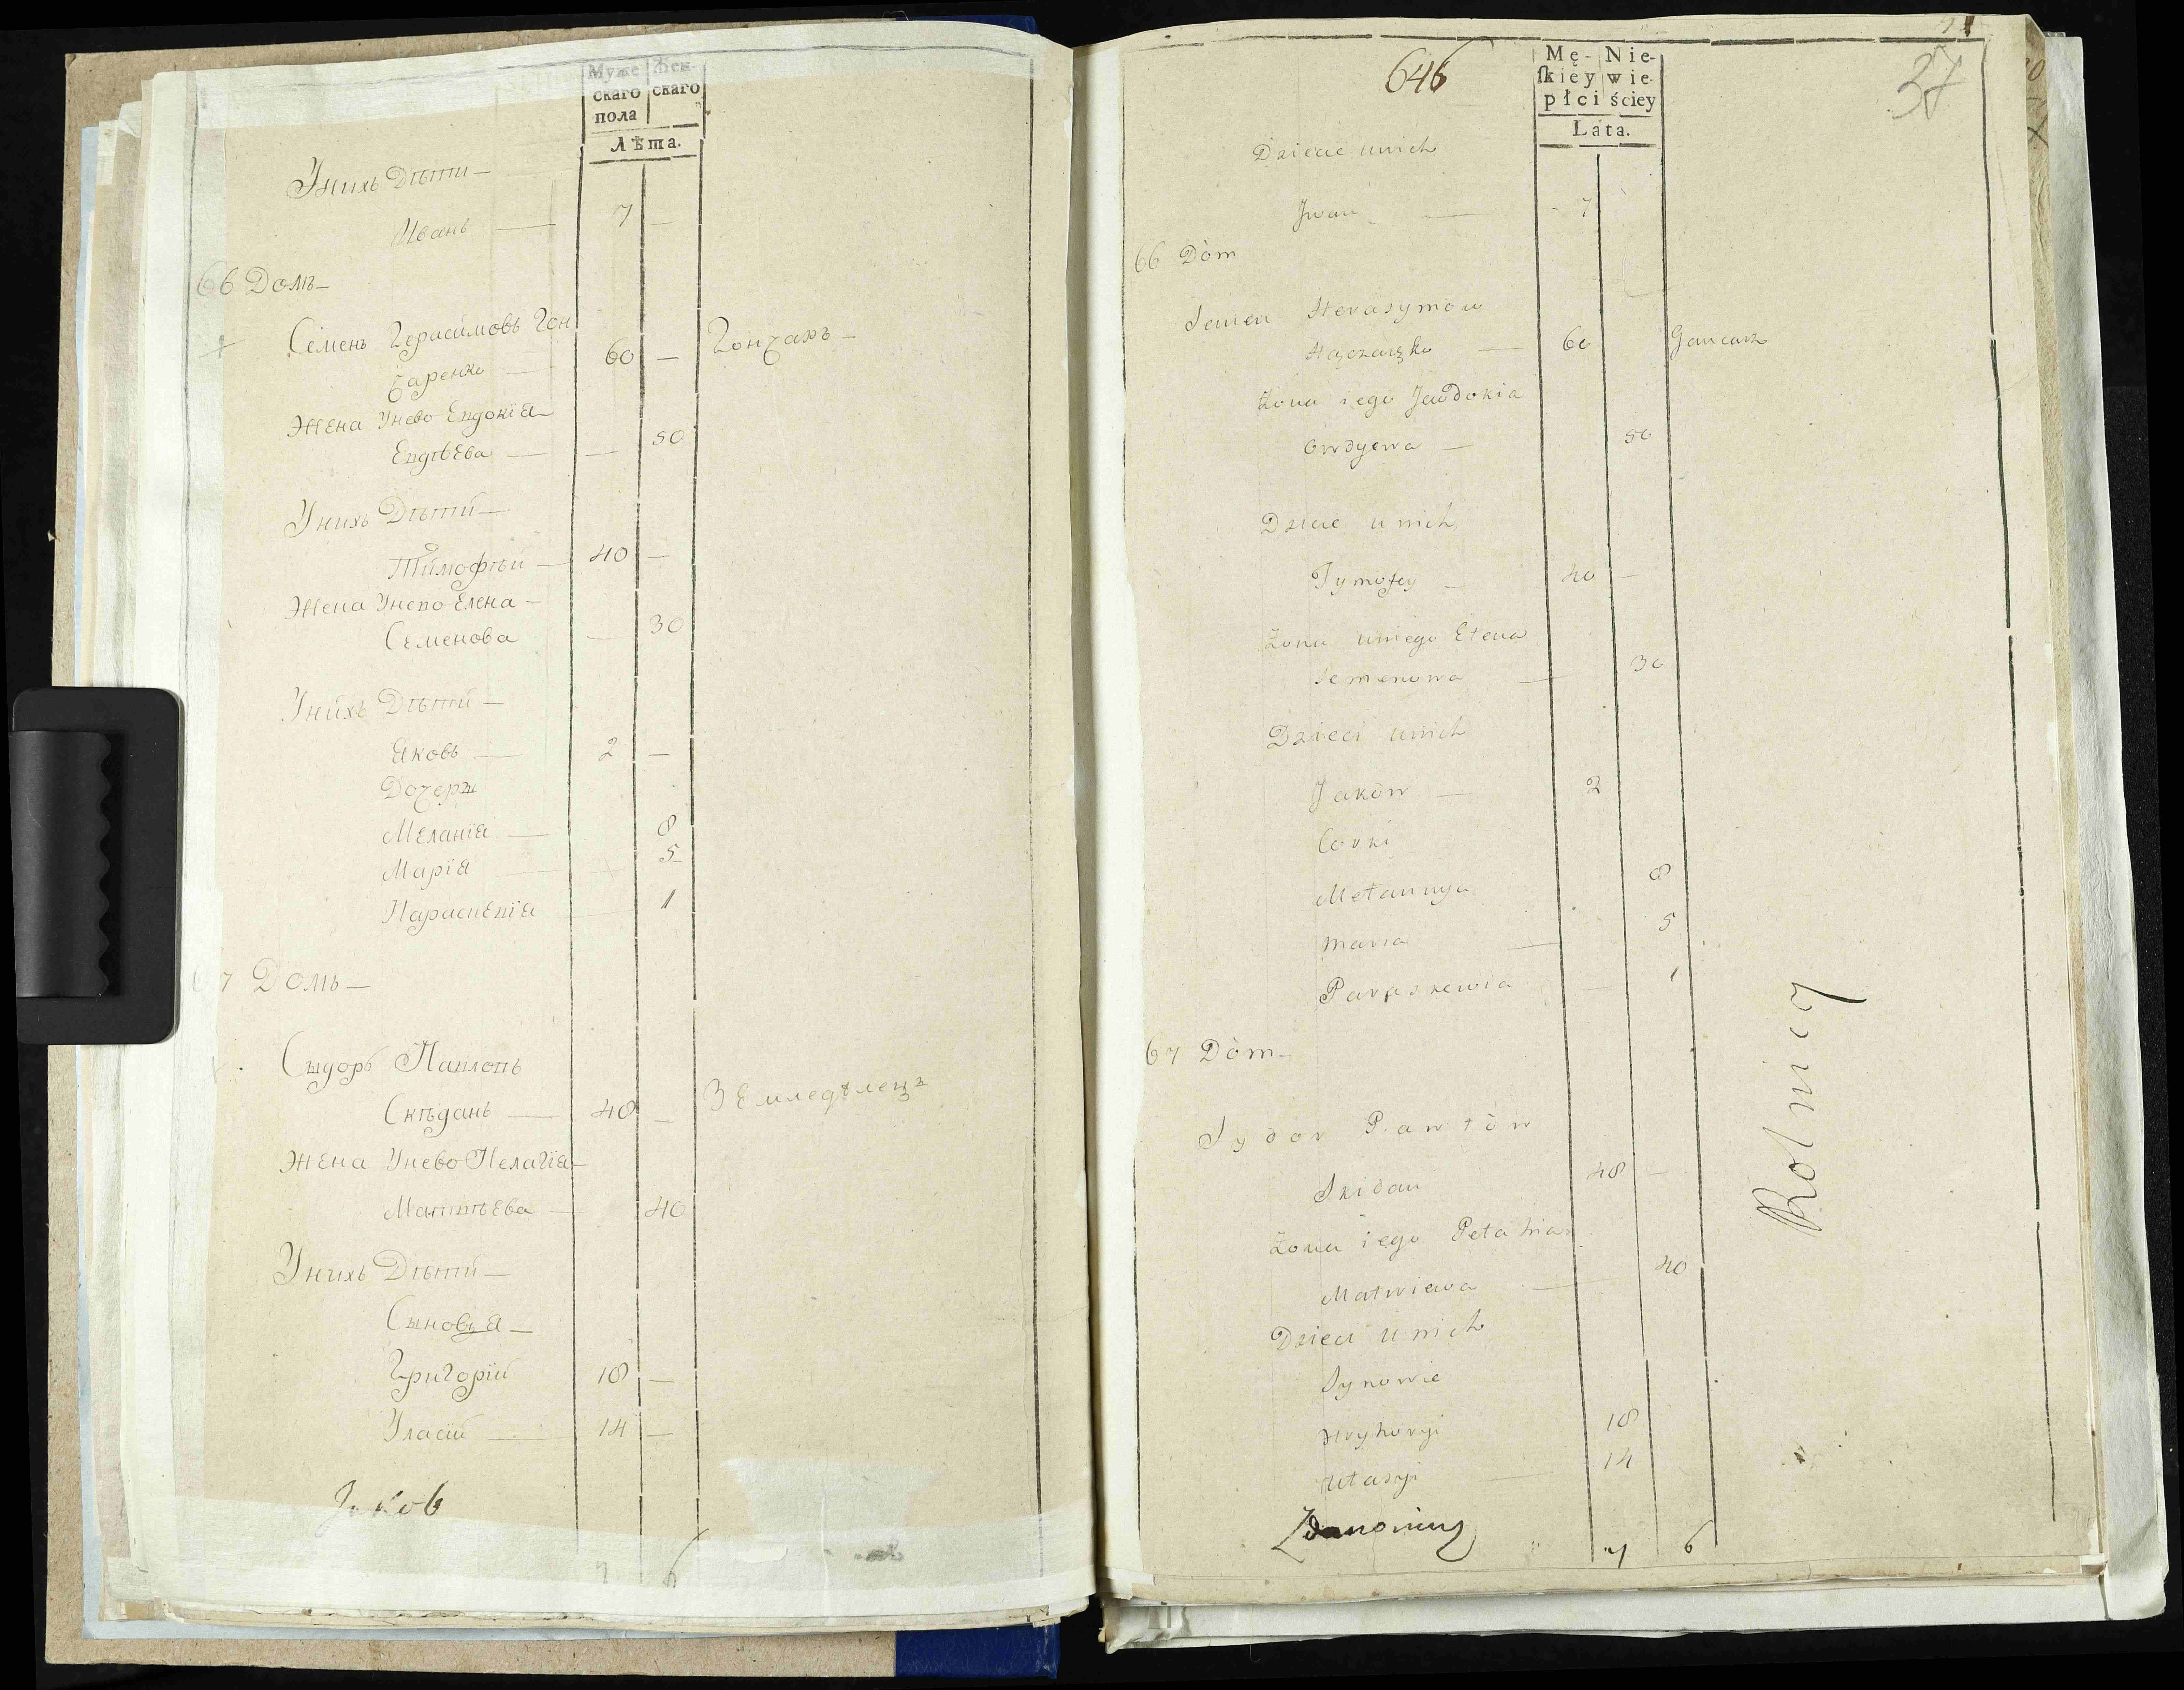 Муже
скаго
пола
Жен-
скаго
Лѣта.
Унихъ Дѣти —
Иванъ — 7 —
66 Домъ —
Семенъ Герасимовъ Гон
чаренко — 60 — Гончаръ —
Жена Унево Евдокія
Евдѣева — — 50
Унихъ Дѣти —
Тимофѣй — 40 —
Жена Унево Елена —
Семенова — 30
Унихъ Дѣти —
Яковъ — 2 —
Дочеры
Меланія — 8
Марія 5
Параскевія 1
67 Домъ —
Сыдоръ Павловъ
Скѣданъ — 48 — Земледѣлецъ
Жена Унево Пелагія
Матвѣева — 40
Унихъ Дѣти —
Сыновья —
Григорій 18 —
Уласій — 14 —
Jakob
7 6
646
37
Mę-
skiey
płci
Nie-
wie-
ściey
Lata.
Dziecie unich
Iwan — 7
66 Dòm
Semen Herasymow
60 Gancarz
Żona iego Jawdokia
Owdyewa — 50
Dziecie unich
Tymofey — 40 —
Żona uniego Ełena
Semenowa — 30
Dzieci unich
Jakòw — 2
Corki
Mełannya 8
Maria — 5
Paraskewia — 1
67 Dòm —
Sydor Pawłòw
Skidan 48 —
Rolnicy
Żona iego Pełahia
Matwiewa — 40
Dzieci unich
Synowie
Hryhoryi 18
Ułasyi — 14
7 6